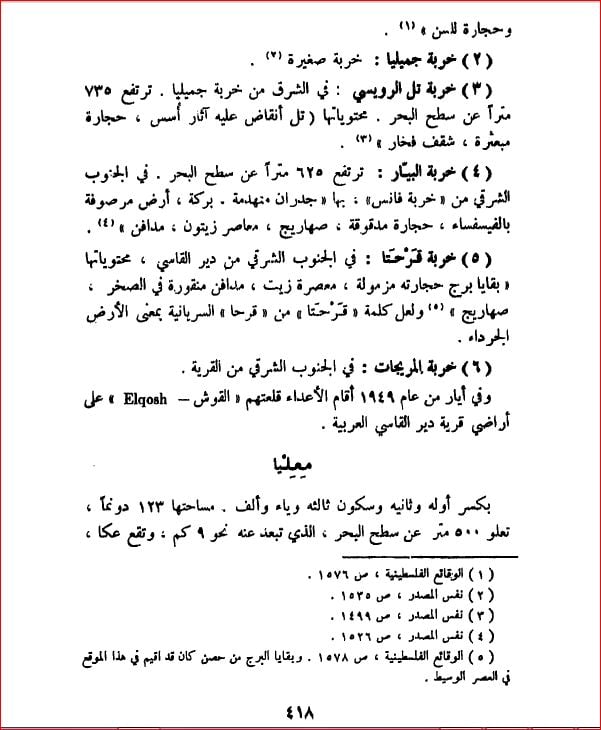 وحجارة للسن » (١) .
( ٢ ) خربة جميليا : خربة صغيرة (٢) .
( ٣ ) خربة تل الرويسي : في الشرق من خربة جميليا . ترتفع ٧٣٥
متراً عن سطح البحر . محتوياتها ( تل أنقاض عليه آثار أُسس ، حجارة
مبعثرة ، شقف فخار » (٣) .
( ٤ ) خربة البيّار : ترتفع ٦٢٥ متراً عن سطح البحر . في الجنوب
الشرقي من « خربة فانس » ، بها « جدران منهدمة . بركة ، أرض مرصوفة
بالفيسفساء ، حجارة مدقوقة ، صهاريج ، معاصر زيتون ، مدافن » (٤) .
( ٥ ) خربة قَرْحَتا : في الجنوب الشرقي من دير القاسي ، محتوياتها
« بقايا برج حجارته مزمولة ، معصرة زيت ، مدافن منقورة في الصخر ،
صهاريج » (٥) ولعل كلمة « قَرْحَتا » من « قرحا » السريانية بمعنى الأرض
الجرداء .
( ٦ ) خربة المريجات : في الجنوب الشرقي من القرية .
وفي أيار من عام ١٩٤٩ أقام الأعداء قلعتهم « القوش – Elqosh » على
أراضي قرية دير القاسي العربية .
مِعِلْيا
بكسر أوله وثانيه وسكون ثالثه وياء وألف . مساحتها ١٢٣ دونماً ،
تعلو ٥٠٠ متر عن سطح البحر ، الذي تبعد عنه نحو ٩ كم ، وتقع عكا ،
( ١ ) الوقائع الفلسطينية ، ص ١٥٧٦ .
( ٢ ) نفس المصدر ، ص ١٥٣٥ .
( ٣ ) نفس المصدر ، ص ١٤٩٩ .
( ٤ ) نفس المصدر ، ص ١٥٢٦ .
( ٥ ) الوقائع الفلسطينية ، ص ١٥٧٨ . وبقايا البرج من حصن كان قد اقيم في هذا الموقع
في العصر الوسيط .
٤١٨